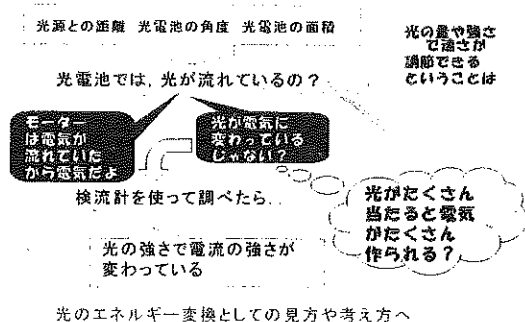 光源との距離 光電池の角度 光電池の面積
光の量や強さ
で速さが
調節できる
ということは
光電池では，光が流れているの？
モーター
は電気が
流れていた
から電気だよ
光が電気に
変わっている
じゃない？
検流計を使って調べたら..
光がたくさん
当たると電気
がたくさん
作られる？
光の強さで電流の強さが
変わっている
光のエネルギー変換としての見方や考え方へ